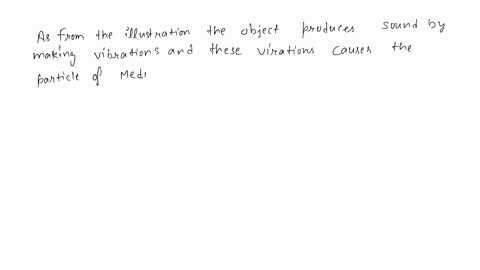 As from the illustration the object produces sound by
making vibrations and these virations causes the
particle of Medi